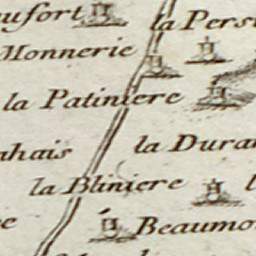 aufort
la Pers
Monnerie
la Patiniere
ahais
la Dura
la Bliniere
Beaumo